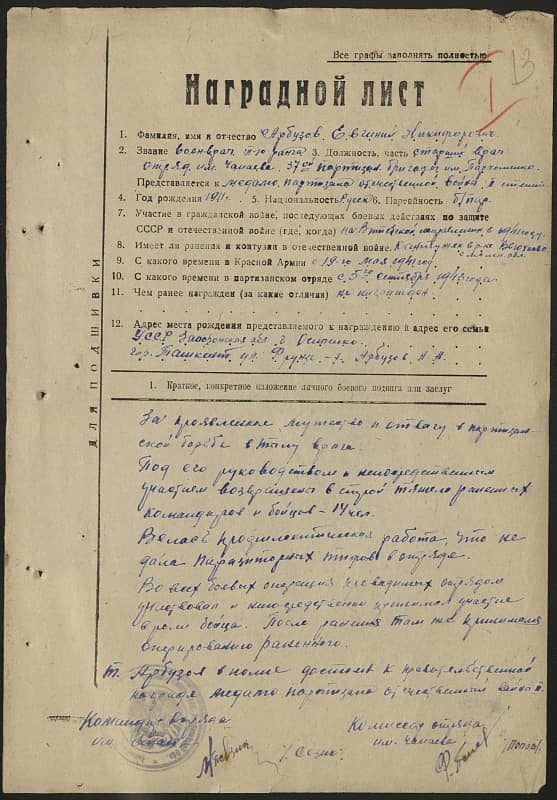 Все графы заполнять полностью
13
Наградной лист
1. Фамилия, имя и отчество Арбузов Евгений Никифорович
2. Звание военврач III-го ранга 3. Должность, часть старший врач
отряд. им. Чапаева 37ой партизан. бригады им. Пархоменко
Представляется к медалю партизана отечественной войны II степени
4. Год рождения 1911. 5. Национальность Русск 6. Партийность б/пар.
7. Участие в гражданской войне, последующих боевых действиях по защите
СССР и отечественной войне (где, когда) на Витебском направлении в 1941 году
8. Имеет ли ранения и контузии в отечественной войне. Контужен в р-не
9. С какого времени в Красной Армии с 19-го мая 1941 год.
10. С какого времени в партизанском отряде с 5го сентября 1943 года.
11. Чем ранее награжден (за какие отличия) не награжден
12. Адрес места рождения представляемого к награждению и адрес его семьи
УССР Запорожская обл. г. Осипенко
гор. Ташкент ул. Фрунзе Арбузов
ДЛЯ ПОДШИВКИ
1. Краткое, конкретное изложение личного боевого подвига или заслуг
За проявленное мужество и отвагу в партизан-
ской борьбе в тылу врага.
Под его руководством и непосредственным
участием возвращено в строй тяжело раненных
командиров и бойцов - 14 чел.
Велась профилактическая работа, что не
дала паразиторных тифов в отряде.
Во всех боевых операция проводимых отрядом
участвовал и непосредственно принимал участие
в роли бойца. После ранения там же принимался
оперированию раненного.
т. Арбузов вполне достоин к правительственной
награде медалю партизана отечественной войны II
Командир отряда
им. Чапаева
Комиссар отряда
им. Чапаева
/Попов/